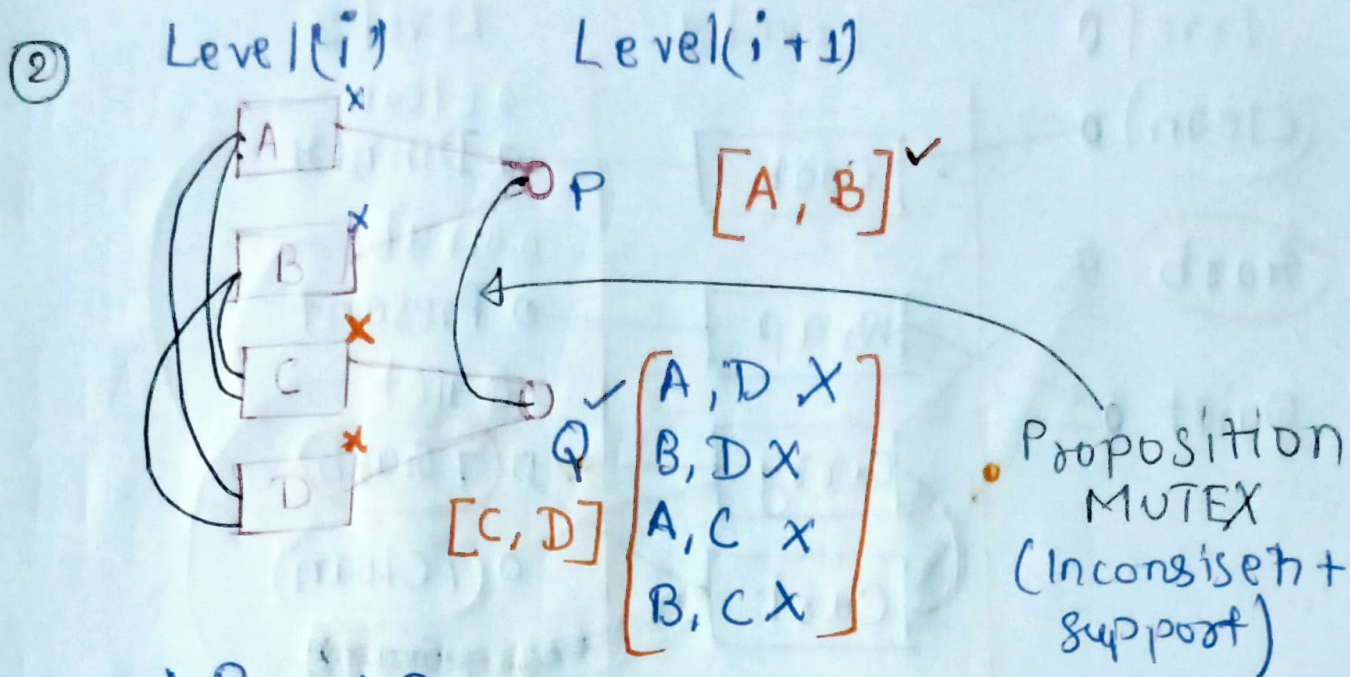 ② Level(i) Level(i+1)
A x
P [A, B] ✓
B x
C x
Q ✓ A, D X
B, D X
A, C X
B, C X
D x
[C, D]
Proposition
MUTEX
(Inconsisent
support)